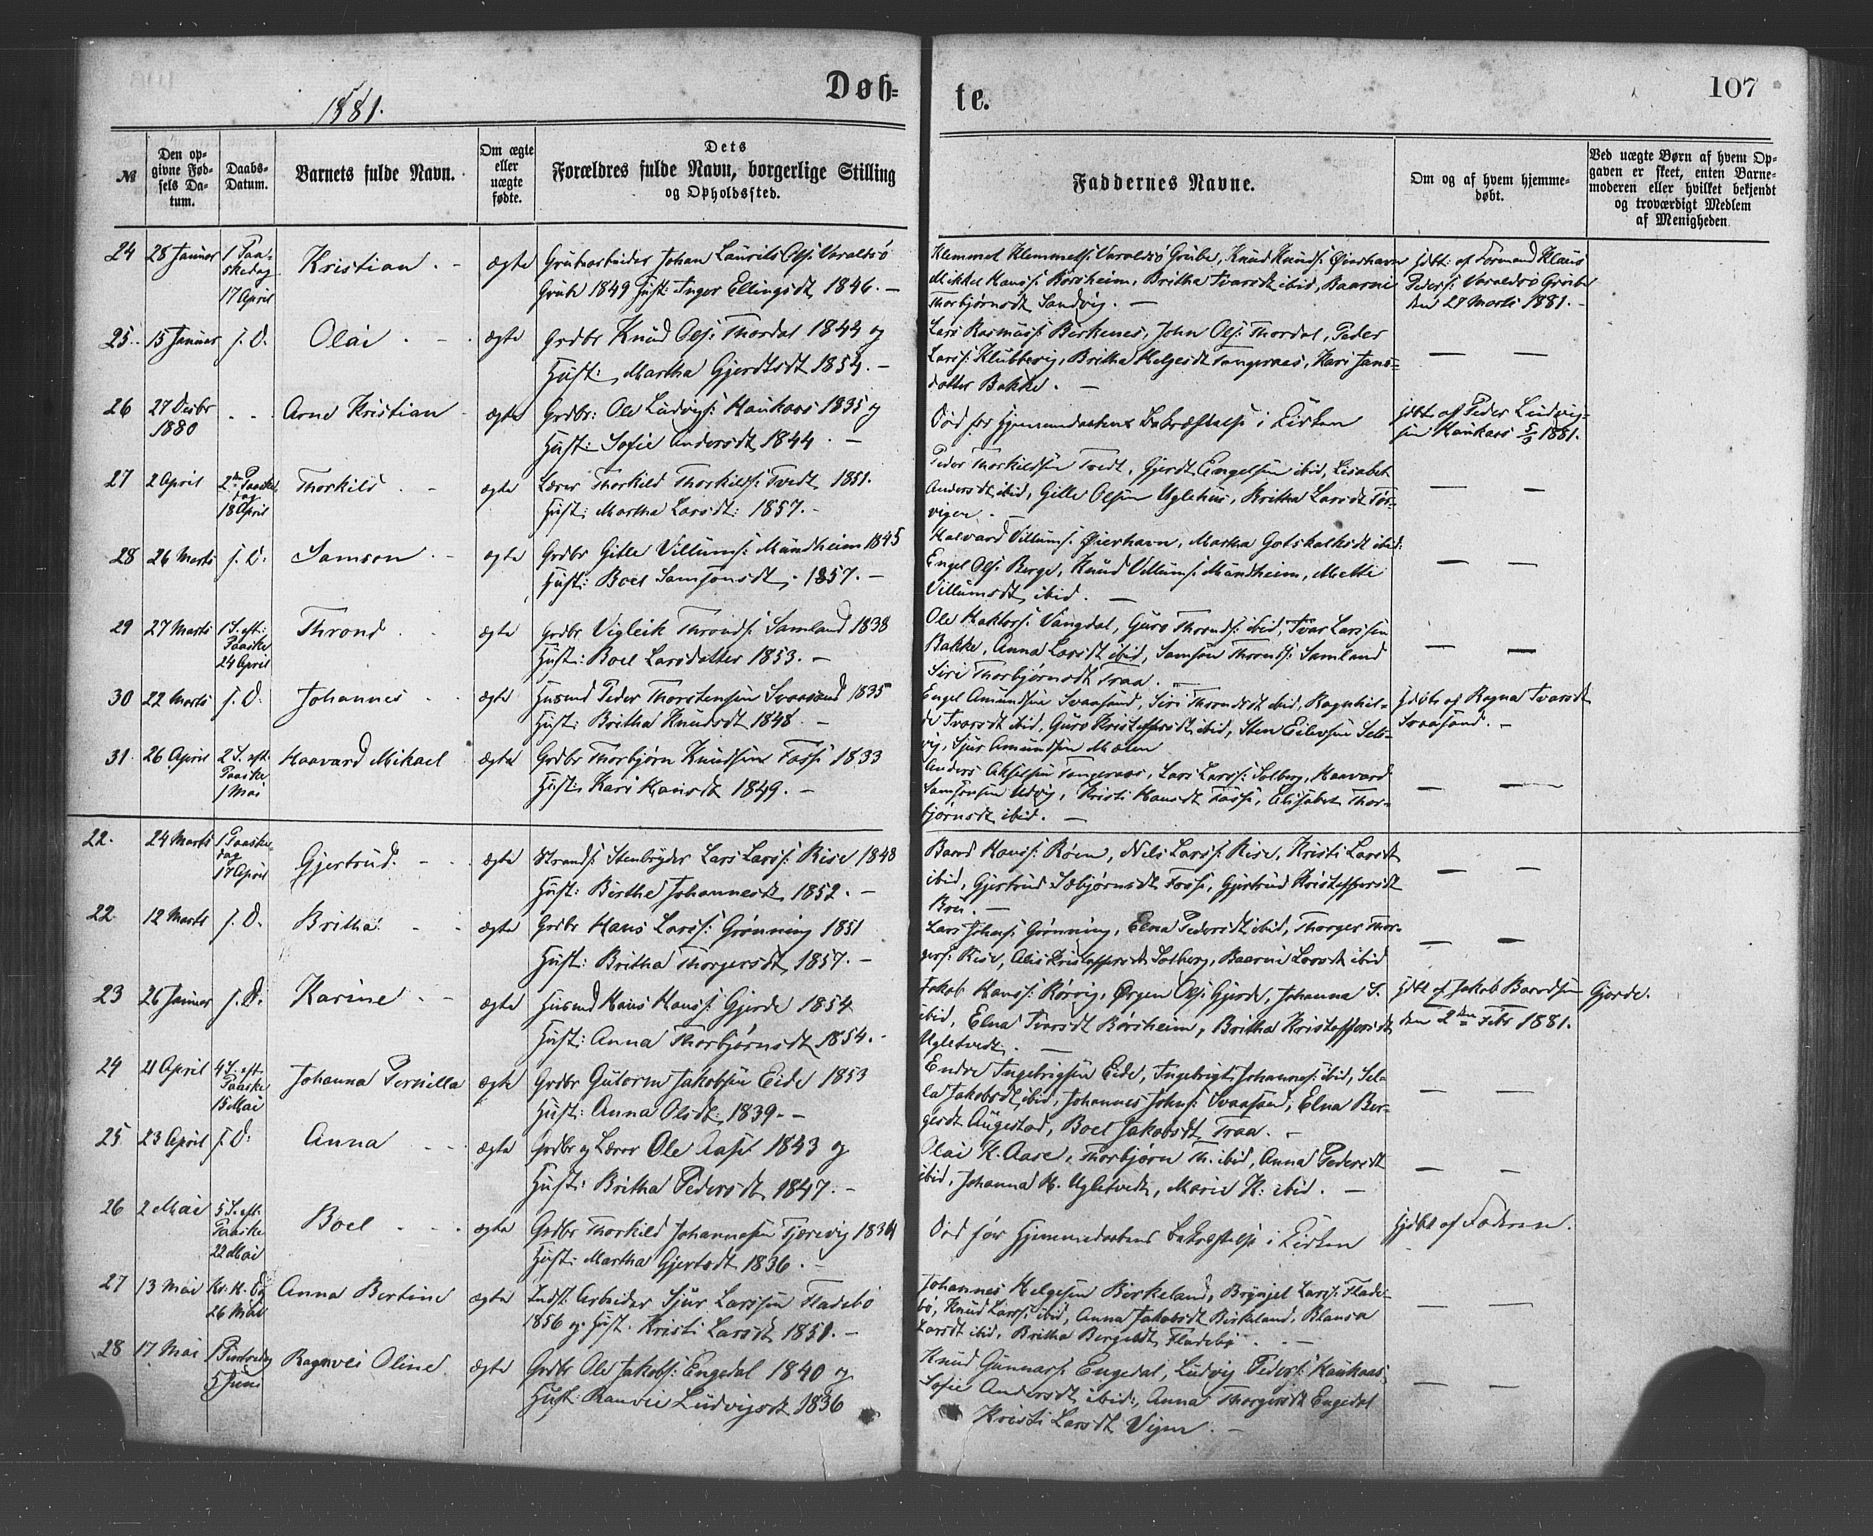 1881.
Døb-
te.
107
№
Den op-
givne Fød-
sels Da-
tum.
Daabs-
Datum.
Barnets fulde Navn.
Om ægte
eller
uægte
fødte.
Dets
Forældres fulde Navn, borgerlige Stilling
og Opholdssted.
Faddernes Navne.
Om og af hvem hjemme-
døbt.
Ved uægte Børn af hvem Op-
gaven er skeet, enten Barne-
moderen eller hvilket bekjendt
og troværdigt Medlem
af Menigheden.
24 28 Januar 1 Paa-
skedag
17 April
Kristian. ægte
Grubearbeider Johan Laurits Ols: Varaldsö
Grube 1849 Hust: Inger Ellingsdt 1846. —
Klemmet Klemmets: Varaldsö Grube, Knud Knuds: Øierhavn
Mikkel Hans: Børsheim, Britha Ivarsdt ibid, Baarni
Thorbjørnsdt Sandvig. —
hjdbt: af Formand Klaus
Peders: Varaldsö Grube
den 29 Marts 1881. —
25. 15 Januar s. D. Olai ægte
Grdbr Knud Ols: Thordal 1844 og
Hust: Martha Gjerdtsdt 1854. —
Lars Rasmuss: Birkenes, John Ols: Thordal, Peder
Larss: Klubbevig, Britha Helgesdt Tangeraas, Kari Jans-
datter Bakke. —
— —
26 27 Decbr
1880
Arne Kristian ægte
Grdbr: Ole Ludvigs: Haukaas 1835 og
Hust: Sofie Andersdt 1844. —
Død før Hjemmedaabens Bekræftelse i Kirken
hjdbt af Peder Ludvig-
sen Haukaas 5/3 1881.
27 2 April 2den Paaske
dag
18 April
Thorkild ægte
Lærer Thorkild Thorkilds: Tvedt 1851.
Hust: Martha Larsdt: 1857. —
Peder Thorkildsen Tvedt, Gjerdt Engelsen ibid, Lisabet
Andersdt ibid, Gitle Olsen Uglehus, Britha Larsdt Tør-
vigen. —
— —
28 26 Marts s. D. Samson ægte
Grdbr Gitle Villums: Mundheim 1845
Hust: Boel Samsonsdt 1857. —
Halvard Villums: Øierhavn, Martha Gotskalksdt ibid:
Engel Ols: Berge, Knud Villums: Mundheim, Mette
Villumsdt ibid. —
— —
29 27 Marts 1 S. eft:
Paaske
24 April
Thrond ægte
Grdbr Vigleik Thronds: Samland 1838
Hust: Boel Larsdatter 1853. —
Ole Haktors: Vangdal, Guro Thronds: ibid, Ivar Larssen
Bakke, Anna Larsdt ibid, Samson Thronds: Samland
Siri Thorbjørnsdt Traa. —
— —
30 22 Marts s. D. Johannes ægte
Husmd Peder Thorstensen Svaasand 1835
Hust: Britha Knudsdt 1848. —
Engel Amundsen Svaasand, Siri Throndsdt ibid, Ragnhil-
de Ivarsdt ibid, Guro Kristoffersdt ibid, Sten Eilevsen Sels-
vig, Sjur Amundsen Mælen
hjdbt af Ragna Ivarsdt
Svaasand. —
31. 26 April 2 S. eft
Paaske
1 Mai
Haavard Mikael ægte
Grdbr Thorbjørn Knudsen Fosse 1833
Hust: Kari Hansdt 1849. —
Anders Akselsen Tangeraas, Lars Larss: Solberg, Haavard
Samsonsen Udvig, Kristi Hansdt Fosse, Elisabet Thor-
bjørnsdt ibid. —
— —
22. 24 Marts 1 Paaske-
dag
17 April
Gjertrud. ægte
Strands: Stenbryder Lars Larss: Rise 1848
Hust: Birthe Johannesdt 1852. —
Baard Hanss: Røen, Nils Larss: Rise, Kristi Larsdt
ibid, Gjertrud Sæbjørnsdt Fosse, Gjertrud Kristoffersdt
Roe. —
— —
22. 12 Marts s. D. Britha ægte
Grdbr Hans Larss: Grønning 1851
Hust: Britha Thorgersdt 1857. —
Lars Johs: Grønning, Elna Pedersdt ibid, Thorger Thor-
gers: Rise, Alis Kristoffersdt Solberg, Baarni Larsdt ibid
— —
23 26 Januar s. D. Karine ægte
Husmd Hans Hanss: Gjerde 1854
Hust: Anna Thorbjørnsdt 1854. —
Jakob Hanss: Rørvig, Ørgen Ols: Gjerde, Johanna S.
ibid, Elna Ivarsdt Børsheim, Britha Kristoffersdt
Ugletvedt. —
hjdbt af Jakob Baardsen Gjerde.
den 2den Febr 1881.
24 21 April 4 S. eft
Paaske
15 Mai
Johanna Pernilla ægte
Grdbr Gutorm Jakobsen Eide 1853
Hust: Anna Olsdt: 1839. —
Endre Ingebrigtsen Eide, Ingebrigt Johanness: ibid, Sel-
la Jakobsdt ibid, Johannes Johns: Svaasand, Elna Ber-
gesdt Augestad, Boel Jakobsdt Traa. —
— —
25 23 April s. D: Anna ægte
Grdbr og Lærer Ole Aase 1843 og
Hust: Britha Pedersdt 1847. —
Olai K. Aase, Thorbjørn Th. ibid, Anna Pedersdt
ibid, Johanna H. Ugletvedt, Marie K: ibid. —
— —
26 2 Mai 5 S. eft.
Paaske
22 Mai
Boel ægte
Grdbr Thorkild Johannesen Tjorevig 1834
Hust: Martha Gjertsdt 1836. —
Død før Hjemmedaabens Bekræftelse i Kirken
hjdbt af Faderen.
27 13 Mai Kr. H. Dg
26 Mai
Anna Bertine ægte
Indst: Arbeider Sjur Larssen Fladebø
1856 og Hust. Kristi Larsdt 1851. —
Johannes Helgesen Birkeland, Brynjel Larss: Flade-
bø, Knud Larss: ibid, Anna Jakobsdt Birkeland, Blansa
Larsdt ibid, Britha Bergesdt Fladebø —
— —
28 17 Mai 1 Pintsedag
5 Juni
Ragnvei Oline ægte
Grdbr Ole Jakobs: Engedal 1840 og
Hust Ranvei Ludvigsdt 1836
Knud Gunnars: Engedal, Ludvig Peders: Haukaas
Sofie Andersdt ibid:, Anna Thorgersdt Engedal
Kristi Larsdt Vigen. —
— —